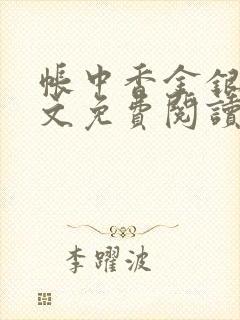 帳中香金銀
文免費閱讀
李躍波